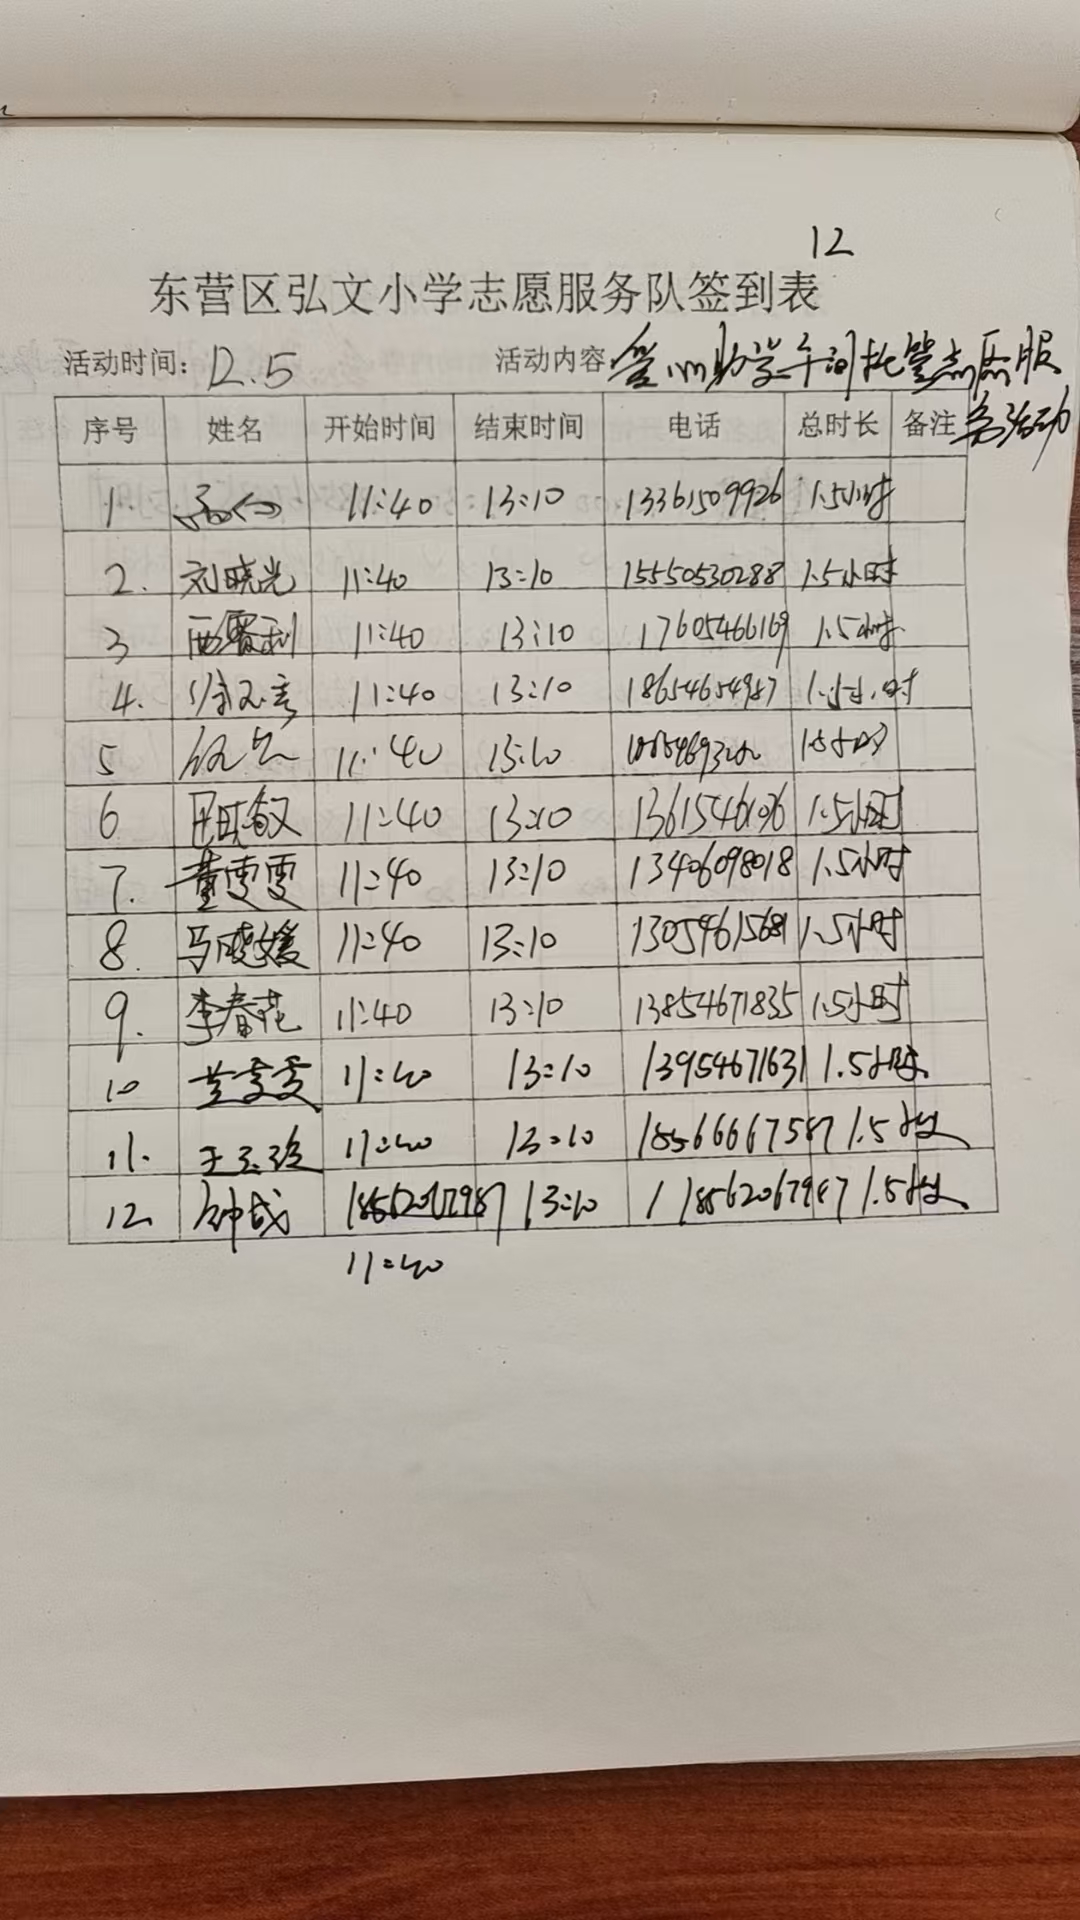 12
东营区弘文小学志愿服务队签到表
活动时间: 12.5 活动内容 爱心助学午间托管志愿服
务活动
序号 姓名 开始时间 结束时间 电话 总时长 备注
1. 11:40 13:10 13361509926 1.5小时
2. 刘晓光 11:40 13:10 15550530288 1.5小时
3 11:40 13:10 17605466169 1.5小时
4. 11:40 13:10 18654654987 1.5小时
5 11:40 13:10 1.5小时
6 11:40 13:10 1.5小时
7. 董雯雯 11:40 13:10 13406098018 1.5小时
8. 马晓媛 11:40 13:10 13054615681 1.5小时
9. 李春花 11:40 13:10 13854671835 1.5小时
10 11:40 13:10 13954671631 1.5小时
11. 11:40 13:10 18566667587 1.5小时
12. 13:10 1.5小时
11:40